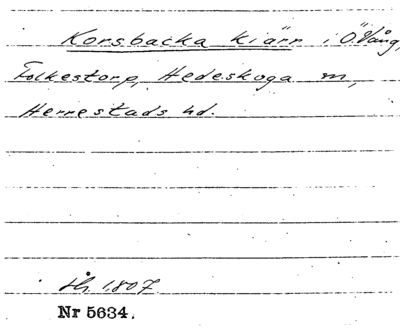 Korsbacka kiärr i Ö. Vång,
Folkestorp, Hedeskoga sn,
Herrestads hd.
År 1807
Nr 5634.